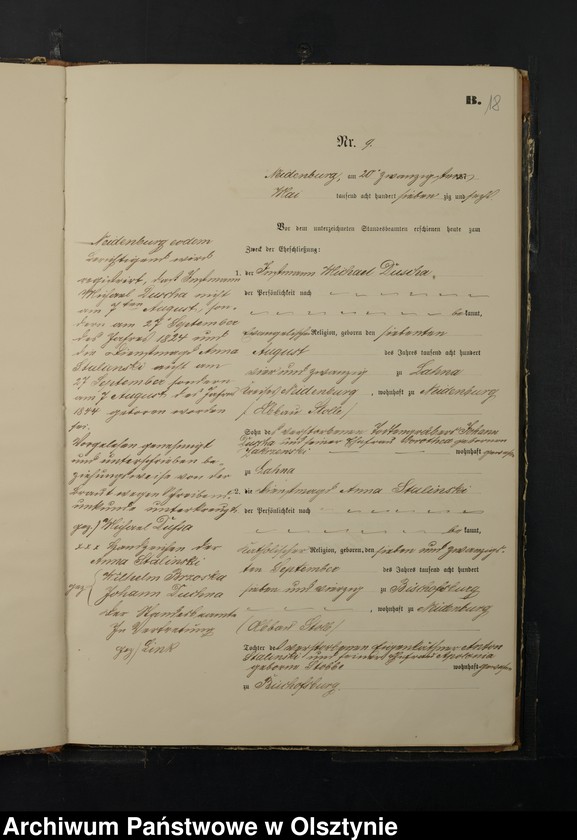 B. 18
Nr. 9.
Neidenburg, am 20 zwanzigsten
Mai tausend acht hundert sieben zig und sechs
Vor dem unterzeichneten Standesbeamten erschienen heute zum
Zweck der Eheschließung:
1. der Instmann Michael Duscha,
der Persönlichkeit nach
bekannt,
evangelischer Religion, geboren den siebenten
August des Jahres tausend acht hundert
vier und zwanzig zu Lahna
Kreises Neidenburg, wohnhaft zu Neidenburg
(Abbau Stolle)
Sohn des verstorbenen Johann
Duscha und seiner Ehefrau Dorothea geborenen
wohnhaft gewesen
zu Lahna
2. die Dienstmagd Anna Stalinski
der Persönlichkeit nach
bekannt,
katholischer Religion, geboren den sieben und zwanzigs-
ten September des Jahres tausend acht hundert
sieben und vierzig zu Bischofsburg
, wohnhaft zu Neidenburg
(Abbau Stolle)
Tochter des verstorbenen Eigenkäthner Anton
Stalinski und seiner Ehefrau Apolonia
geborne Stobbe wohnhaft gewesen
zu Bischofsburg.
Neidenburg eodem
berichtigend wird
registrirt, daß Instmann
Michael Duscha nicht
am 7ten August, son-
dern am 27 September
des Jahres 1824 und
die Dienstmagd Anna
Stalinski nicht am
27 September sondern
am 7 August des Jahres
1844 geboren worden
sei.
Vorgelesen genehmigt
und unterschrieben be-
ziehungsweise von der
Braut wegen Schreibens-
unkunde unterkreuzt
gez) Michael
xxx Handzeichen der
Anna Stalinski
gez) Wilhelm Brzoska
Johann Duschna
Der Standesbeamte
In Vertretung
gez) Link
Archiwum Państwowe w Olsztynie